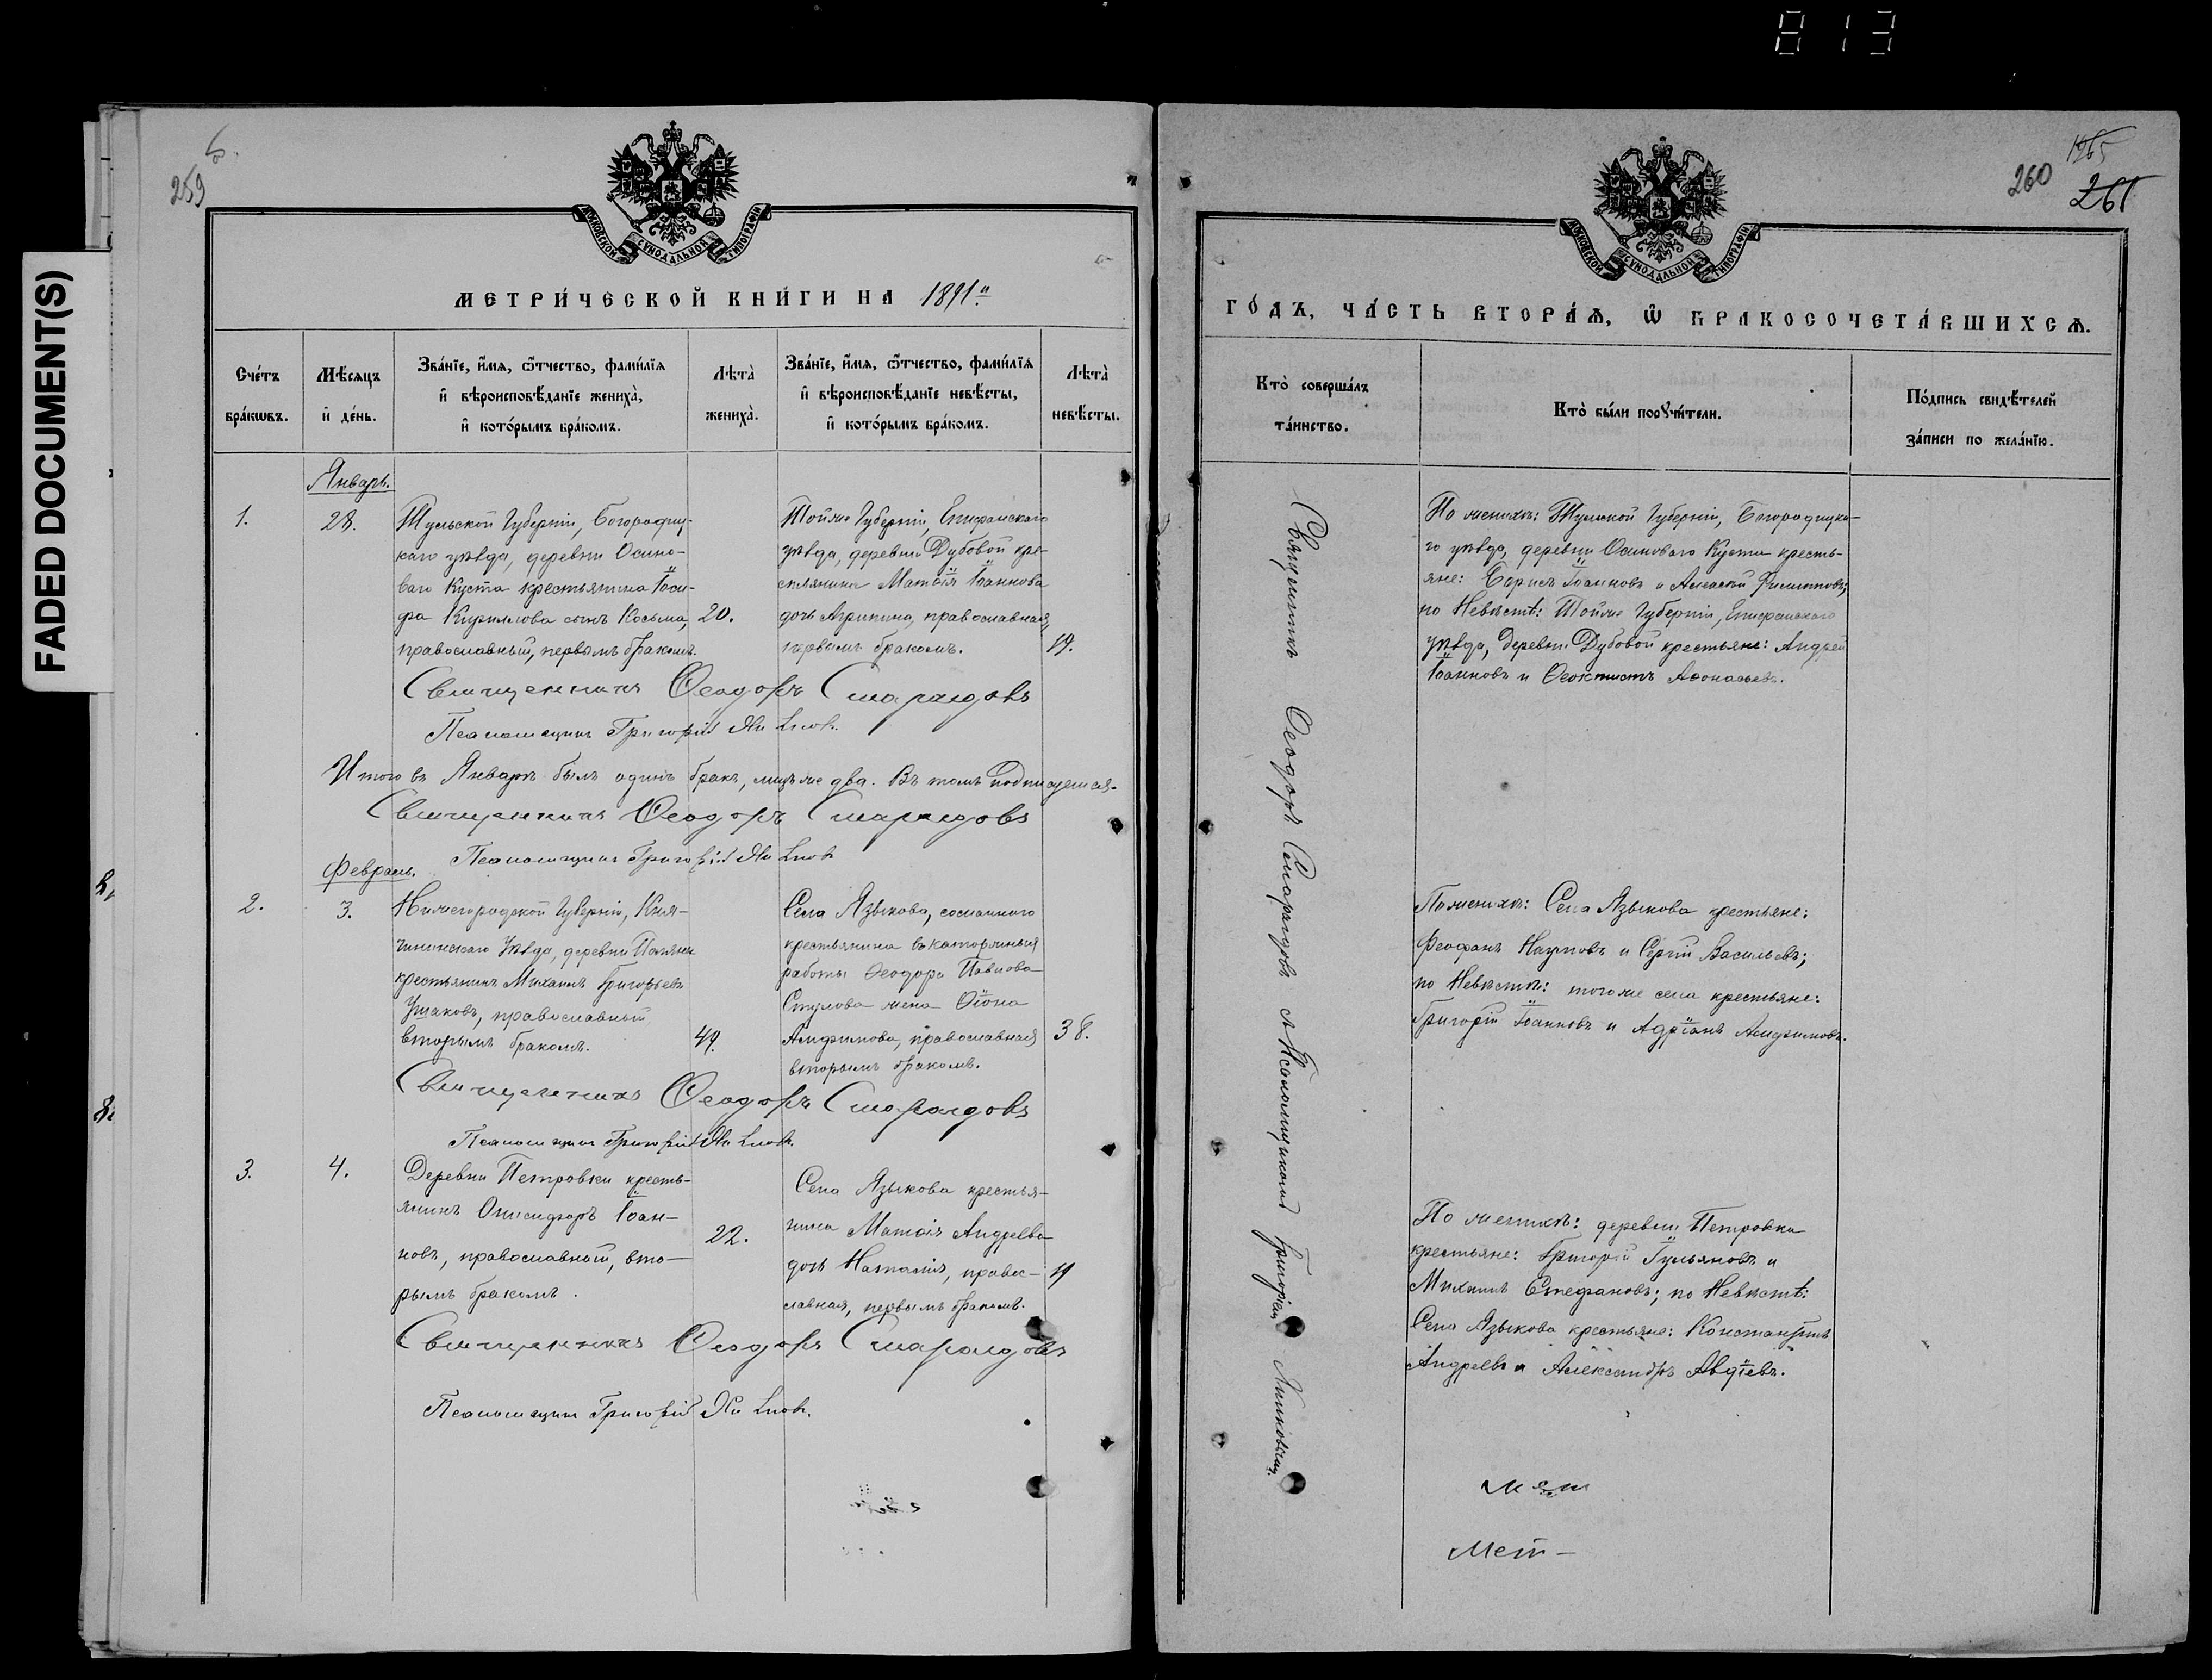 813
FADED DOCUMENT(S)
259
МОСКОВСКОЙ СѴНОДАЛЬНОЙ ТИПОГРАФІИ
МЕТРИ́ЧЕСКОЙ КНИ́ГИ НА 1891й
Сче́тъ бра́кѡвъ.
Мѣ́сяцъ и҆ де́нь.
Зва́нїе, и҆́мѧ, ѻ҆́тчество, фами́лїѧ
и҆ вѣроисповѣ́данїе жениха̀,
и҆ кото́рымъ бра́комъ.
Лѣ́та̀ жениха̀.
Зва́нїе, и҆́мѧ, ѻ҆́тчество, фами́лїѧ
и҆ вѣроисповѣ́данїе невѣ́сты,
и҆ кото́рымъ бра́комъ.
Лѣ́та̀ невѣ́сты.
Январь.
1.
28.
Тульской Губерніи, Богородиц-
каго уѣзда, деревни Осино-
ваго Куста крестьянина Іоси-
фа Кириллова сынъ Косьма,
православный, первымъ бракомъ.
20.
Тойже Губерніи, Епифанскаго
уѣзда, деревни Дубовой кре-
стьянина Матѳія Іоаннова
дочь Агрипина, православная,
первымъ бракомъ.
19.
Священникъ Ѳеодоръ Смарагдовъ
Псаломщикъ Григорій
Итого въ Январѣ былъ одинъ бракъ, лицъ же два. Въ томъ подписуемся.
Священникъ Ѳеодоръ Смарагдовъ
Псаломщикъ Григорій
Февраль.
2.
3.
Нижегородской Губерніи, Кня-
гининскаго Уѣзда, деревни
крестьянинъ Михаилъ Григорьевъ
Ушаковъ, православный
вторымъ бракомъ.
49.
Села Языкова, сосланнаго
крестьянина въ каторжныя
работы Ѳеодора Павлова
жена
Анфимова, православная
вторымъ бракомъ.
38.
Священникъ Ѳеодоръ Смарагдовъ
Псаломщикъ Григорій
3.
4.
Деревни Петровки кресть-
янинъ Онисифоръ Іоан-
новъ, православный, вто-
рымъ бракомъ.
22.
Села Языкова крестья-
нина Матѳія Андреева
дочь Наталія, правос-
лавная, первымъ бракомъ.
19
Священникъ Ѳеодоръ Смарагдовъ
Псаломщикъ Григорій
260
1265
261
МОСКОВСКОЙ СѴНОДАЛЬНОЙ ТИПОГРАФІИ
ГО́ДЪ, ЧА́СТЬ ВТОРА́Ѧ, Ѽ БРАКОСОЧЕТА́ВШИХСѦ.
Кто̀ соверша́лъ
та́инство.
Кто̀ бы́ли порꙋчи́тели.
По́дпись свидѣ́телей
за́писи по жела́нїю.
Священникъ Ѳеодоръ Смарагдовъ съ Псаломщикомъ Григоріемъ
По женихѣ: Тульской Губерніи, Богородицка-
го уѣзда, деревни Осиноваго Куста кресть-
яне: Борисъ Іоанновъ и Алексѣй Филипповъ;
по Невѣстѣ: Тойже Губерніи, Епифанскаго
уѣзда, Деревни Дубовой крестьяне: Андрей
Іоанновъ и Ѳеоктистъ Аѳонасьевъ.
По женихѣ: Села Языкова крестьяне:
Феофанъ Наумовъ и Сергій Васильевъ;
по Невѣстѣ: тогоже села крестьяне:
Григорій Іоанновъ и Адріанъ Анфимовъ.
По женихѣ: деревни Петровки
крестьяне: Григорій Гульяновъ и
Михаилъ Стефановъ; по Невѣстѣ:
Села Языкова крестьяне: Константинъ
Андреевъ и Александръ Авдіевъ.